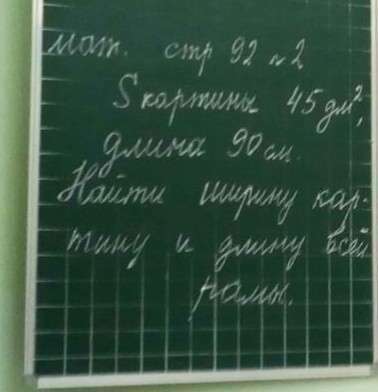 мат. стр 92 н 2
S картины 45 дм²,
длина 90 см.
Найти ширину кар-
тину и длину всей
рамы.